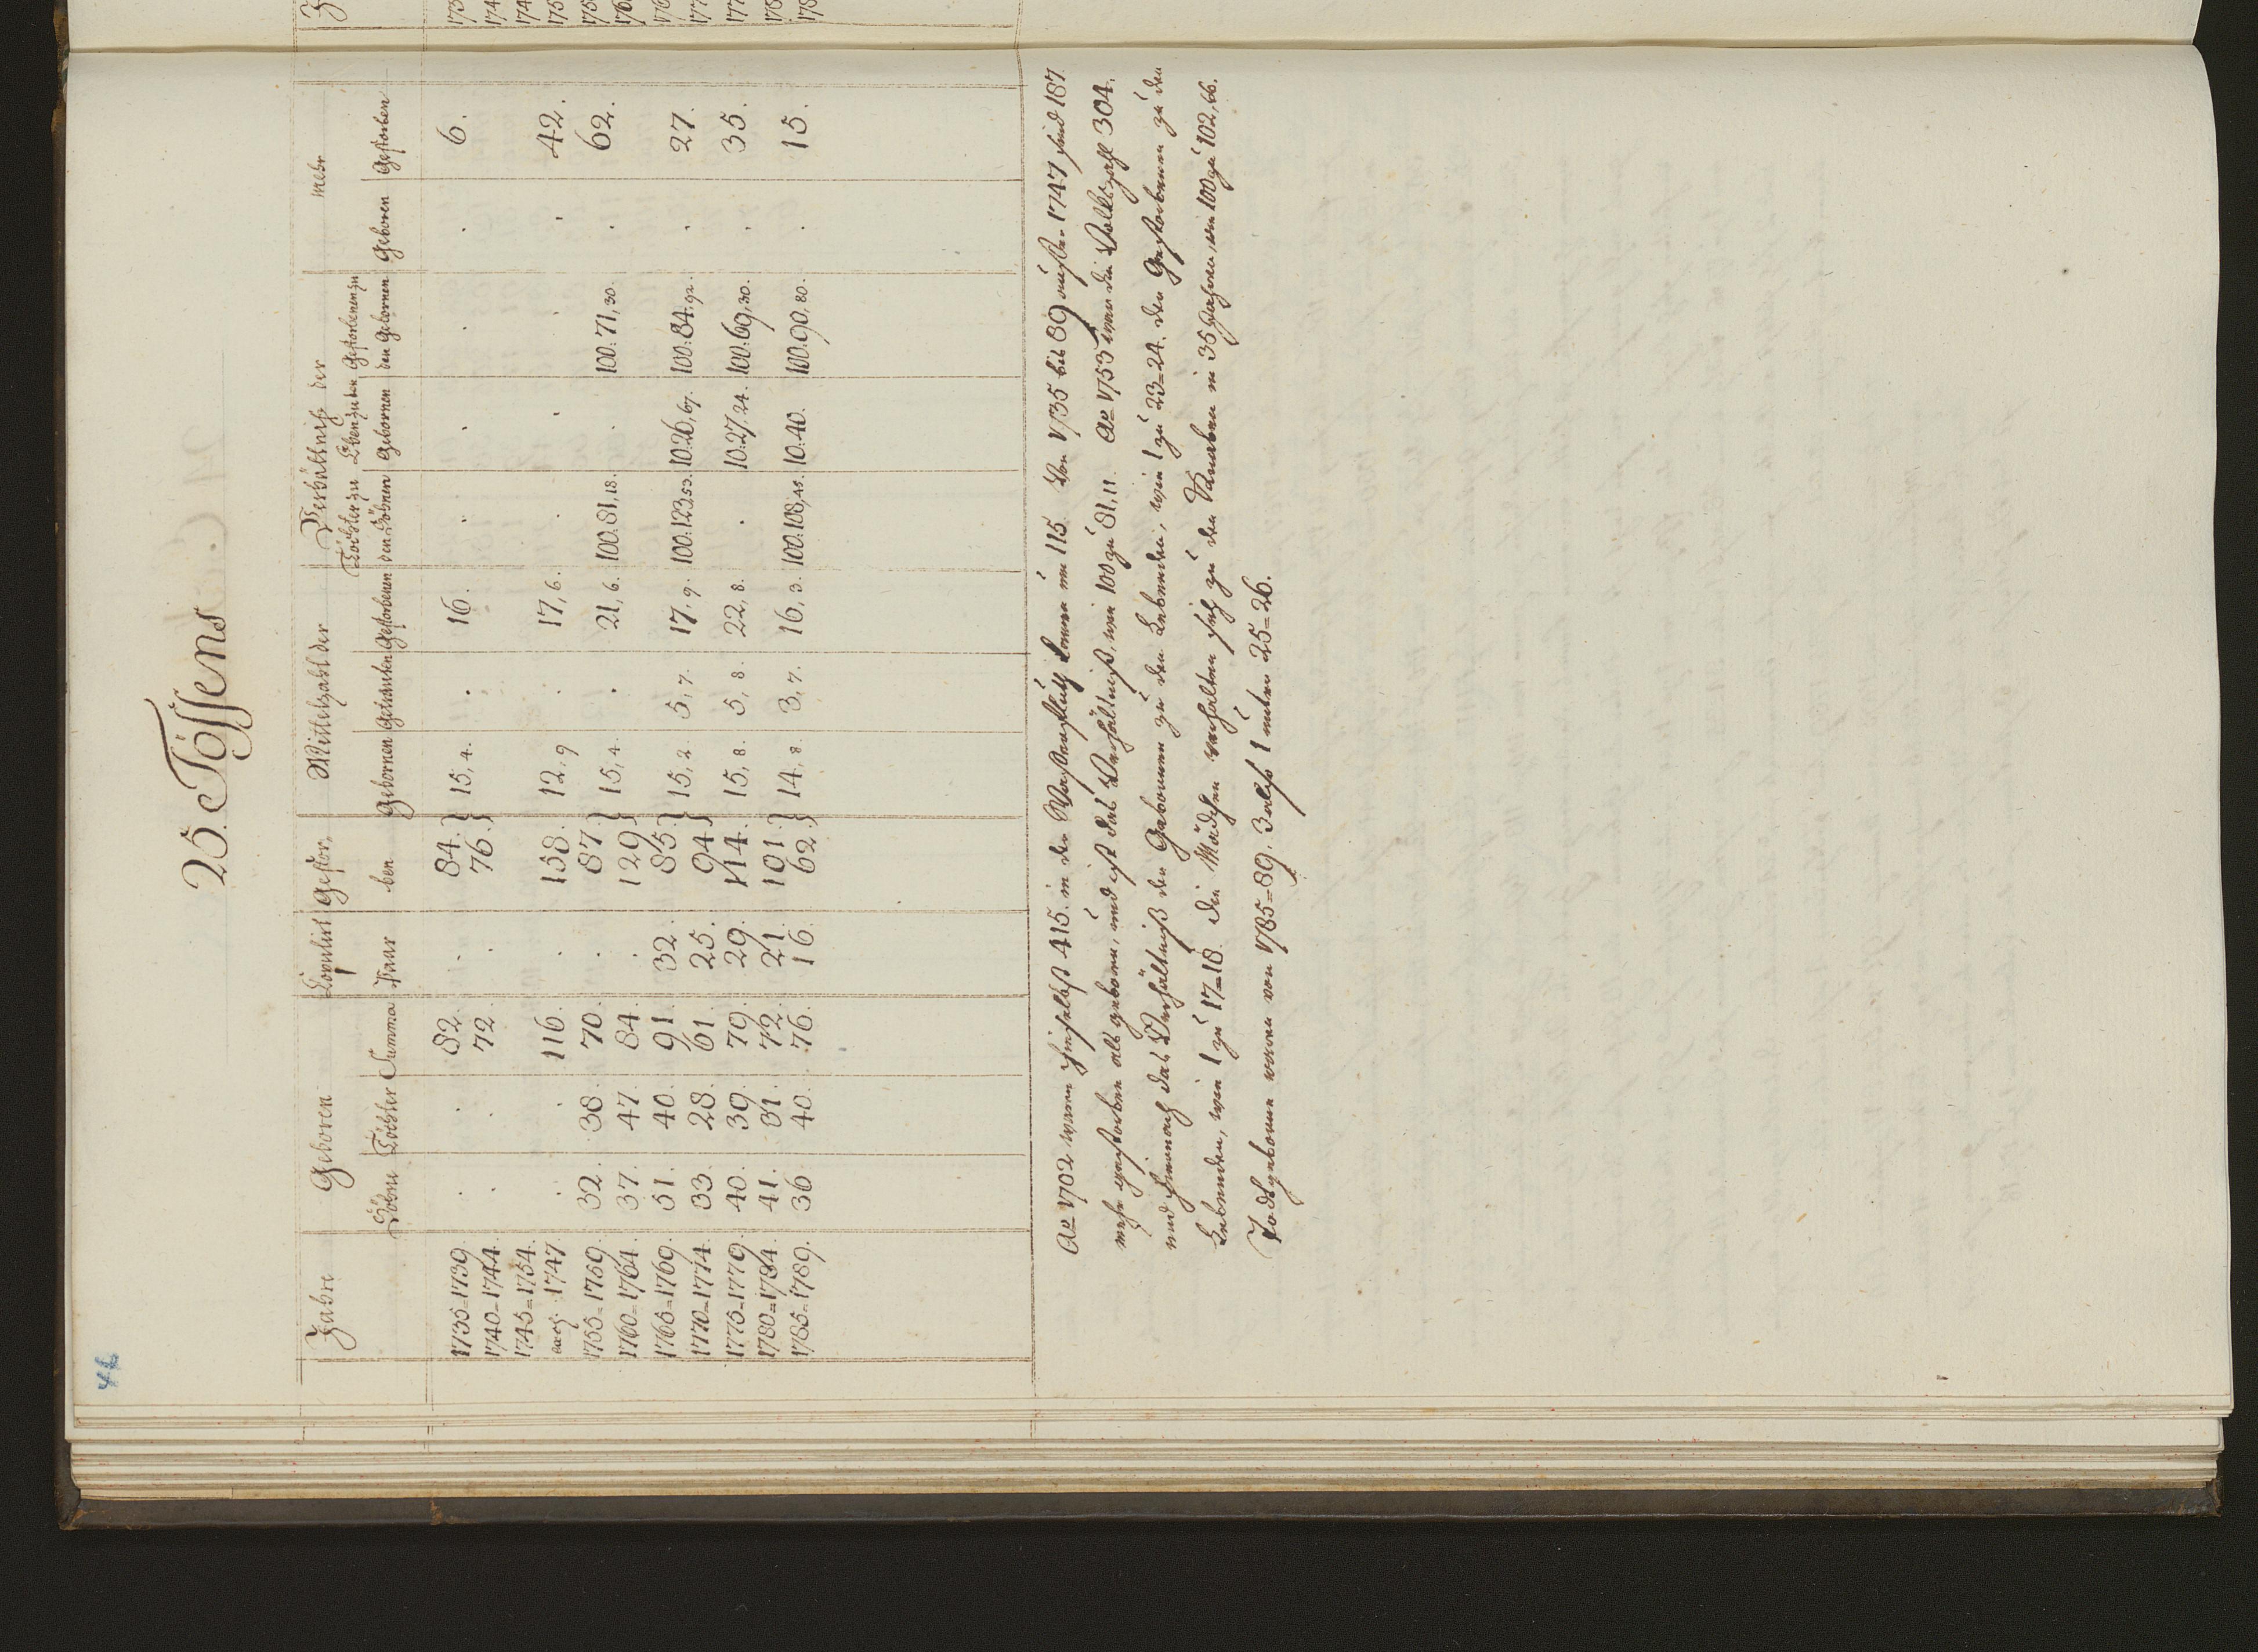 44
25. Tossens
Jahre Geboren Copulirt Gestor, Mittelzahl der Verhältniß der mehr
Söhne Töchter Summa Paar ben Gebornen Getrauten Gestorbenen Töchter zu den Söhnen Ehen zu den Gebornen Gestorbenen zu den Gebornen Geboren Gestorben
1735=1739. . . 82. . 84. } 15,4. . 16. . . . . 6.
1740=1744. . . 72 . 76. }
1745=1754.
exc. 1747 . . 116. . 158. 12,9 . 17,6. . . . . 42.
1755=1759. 32. 38. 70. . 87. } 15,4. . 21,6. 100:81,18. . 100:71,30. . 62.
1760=1764. 37. 47. 84. . 129. }
1765=1769. 51. 40. 91. 32. 85. } 15,2. 5,7. 17,9. 100:123,53. 10:26,67. 100:84,92. . 27.
1770=1774. 33. 28. 61. 25. 94. }
1775=1779. 40. 39. 79. 29. 114. 15,8. 5,8. 22,8. . 10:27,24. 100:69,30. . 35.
1780=1784. 41. 31. 72. 21. 101. } 14,8. 3,7. 16,3. 100:108,45. 10:40. 100:90,80. . 15.
1785=1789. 36 40. 76. 16. 62. }
Ao 1702 waren hieselbst 415. in der Wasserfluth kamen um 115. Von 1735 bis 89 außer 1747 sind 187
mehr gestorben als geboren, und ist das Verhältniß, wie 100 zu 81,11. Ao 1753 war die Volkszahl 304.
und hiernach das Verhältniß der Gebornen zu den Lebenden, wie 1 zu 23=24. der Gestorbenen zu den
Lebenden, wie 1 zu 17=18. Die Mädchen verhalten sich zu den Knaben in 35 Jahren, wie 100 zu 102,66.
Todtgeborne waren von 1785=89. 3 also 1 unter 25=26.